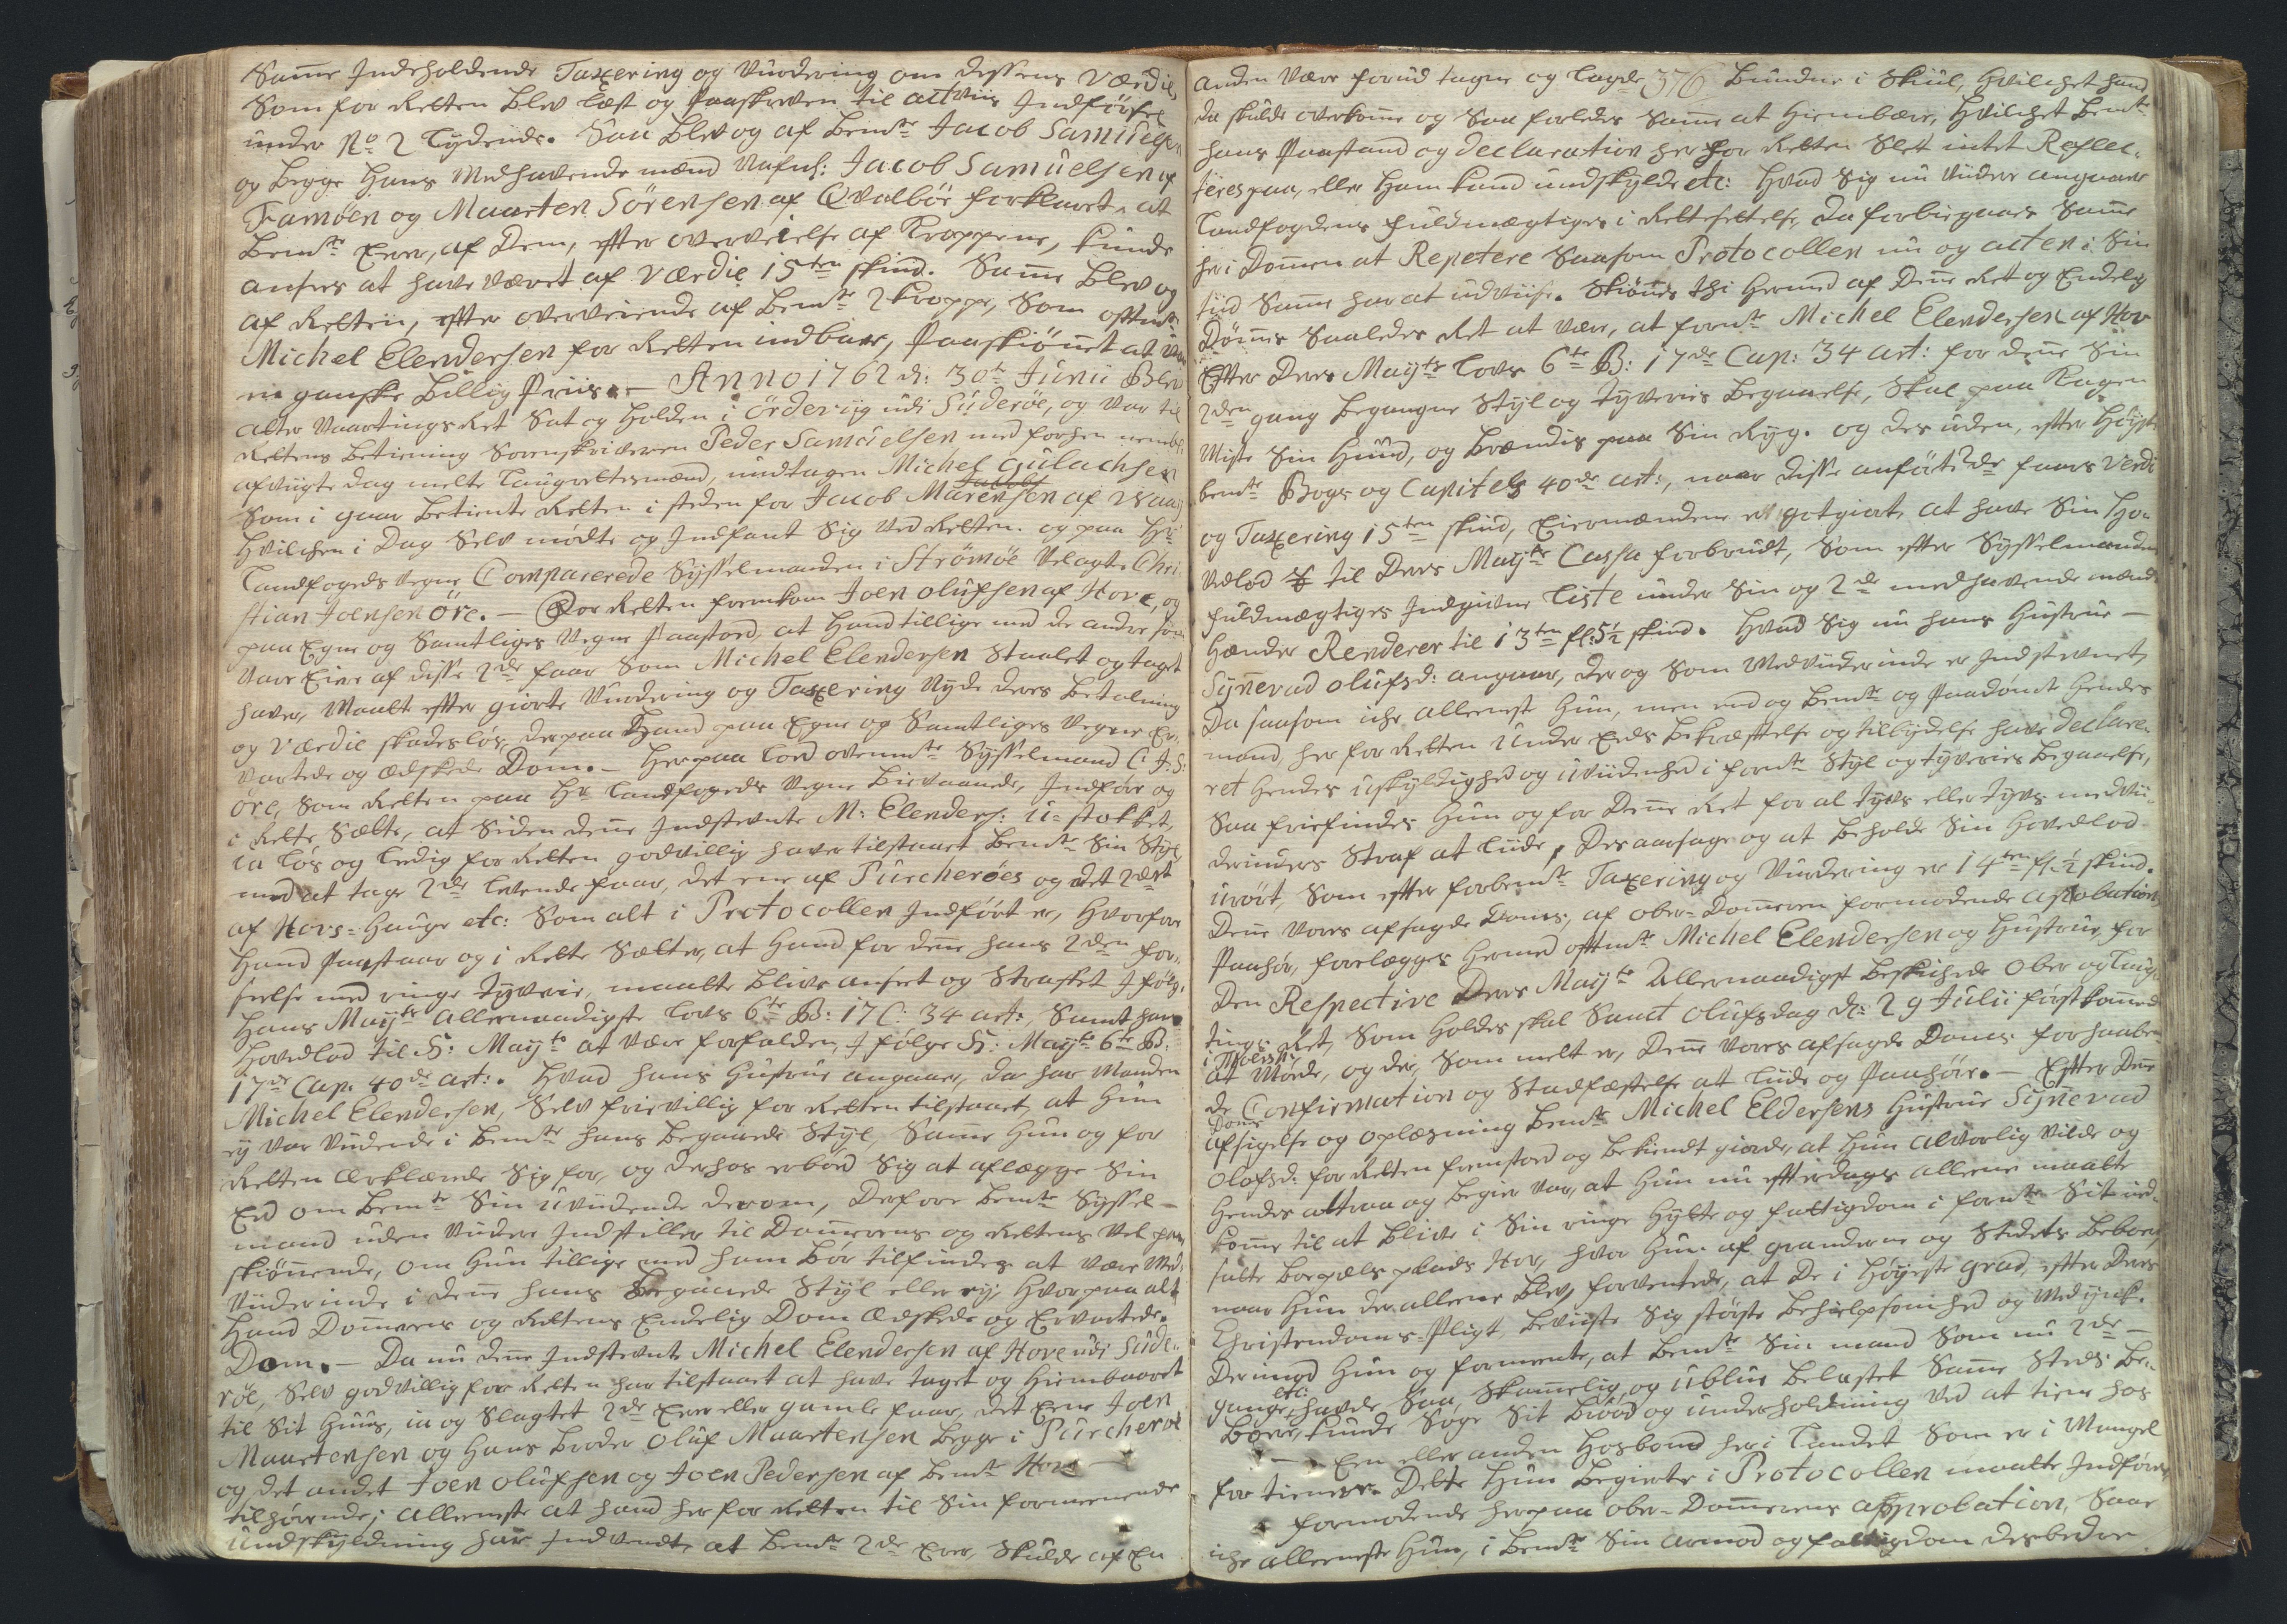 Samme Indeholdende Taxering og Vurdering om dessens Værdie,
Som for Retten blev læst og Paaskreven til actviis Indførsel
under No 2 Lydende. Saa blev og af bemte Jacob Samuelsen
og begge hans Medhavende mænd Nafnl: Jacob Samuelsen af
Famøen og Maarten Sörensen af Qvalböe forklaret, at
bemte Eyer, af dem, efter overveielse af Kroppene, kunde
ansees at have været af Værdie 15ten skind. Samme blev og
af Retten, efter overveiende af bemte 2 Kroppe, Som oftmte
Michel Elendersen for Retten indbar, Paaskiönnet at være
en ganske billig Priis. — Anno 1762 d: 30te Junii Blev
atter Vaartings Ret Sat og holden i Ördeviig udi Suderöe, og var til
Rettens betiening Sorenskriveren Peder Samuelsen med forhen nembl:
afvigte dag melte Laugrettesmænd, undtagen Michel Gulachsen
Som i gaar betiente Retten i steden for Jacob Marensen af Waag
hvilchen i Dag Selv mødte og Indfant Sig ved Retten. og paa Hr
Landfogeds vegne Comparerede Sysselmanden i Strömöe Velagte Chri
stian Joensen Öre. — For Retten fremkom Joen Olufsen af Hove, og
paa Egne og Samtliges Vegne Paastoed, at hand tillige med de andre som
vare Eiere af disse 2de faar Som Michel Elendersen Staalet og taget
haver, Maatte efter giorte Vurdering og Taxering Nyde deres betalning
og Værdie skadesløs, derpaa hand paa Egne og Samtliges Vegne Er-
vartede og Ædskede Dom. — Herpaa lod ovenmte Sysselmand C: J: S:
Öre, Som Retten paa Hr Landfogeds Vegne bievaanede, Indføre og
i Rette Sætte, at Siden denne Indstevnte M: Elenders: u-stokket,
ia løs og ledig for Retten godvillig haver tilstaaet bemte Sin Styl
med at tage 2de levende faar, det ene af Purcheröes og det 2det
af Hovs-Hauge etc: Som alt i Protocollen Indført er, hvorfore
hand Paastaar og i Rette Sætter, at hand for denne hans 2den for-
seelse med ringe Tyverie, maatte blive anseet og Straffet I følge
Hans Mayts allernaadigste Lovs 6te B: 17 C: 34 art:, Samt hans
Hovedlod til H: Mayts at være forfalden, I følge H: Mayts 6te B:
17de Cap: 40de art:. Hvad hans Hustrue angaaer, da har Manden
Michel Elendersen, Selv frievillig for Retten tilstaaet, at Hun
ey var vidende i bemte hans begaaede Styl, Samme hun og for
Retten erklærede Sig for, og derhos erbød Sig at aflægge Sin
Eed om bemte Sin uvidende derom, derfore bemte Syssel-
mand uden videre Indstiller til Dommerens og Rettens Vel paa
skiönnende, om Hun tillige med ham bør tilfindes at være Med-
viderinde i denne hans begaaede Styl eller ey, hvorpaa alt
hand Dommerens og Rettens Endelig Dom Ædskede og Ervartede.
Dom. — Da nu denne Indstevnte Michel Elendersen af Hove udi Sude-
röe, Selv godvillig for Retten har tilstaaet at have taget og Hiembaaret
til Sit Huus, ia og Slagtet 2de Eyer eller gamle faar, det Eene Joen
Maartensen og hans broder Oluf Maartensen begge i Purcheröe
og det andet Joen Olufsen og Joen Pedersen af bemte Hove —
tilhørende; alleneste at hand her for Retten til Sin formeenende
Undskyldning har Indvendt, at bemte 2de Eyer, Skulde af En
anden være forud tagne og lagde 376 bundne i Skiul, hvilchet hand
da skulde overkomme og Saa forledes Samme at Hiembære, hvilchet bemte
hans Paastand og declaration her for Retten Slet intet Reflec-
teres paa, eller ham kand undskylde etc: Hvad Sig nu videre angaaer
Landfogdens fuldmægtiges i Rettesettelse, da forbiegaaes Samme
her i Dommen at Repetere Saasom Protocollen nu og acten i Sin
tiid Samme har at udviise. Skiönnes thi hermed af denne Ret og Endelig
Dømmes Saaledes Ret at være, at fornte Michel Elendersen af Hov
Efter deres Mayts Lovs 6te B: 17de Cap: 34 art: for denne Sin
2den gang begangne Styl og Tyveries begaaelse, Skal paa Kagen
Miste Sin Hud, og brændis paa Sin Ryg. og des uden, efter høyst-
bemte Bogs og Capitels 40de art:, naar disse anførte 2de faars Verdi
og Taxering 15ten skind, Eiermændene er gotgiort, at have Sin Ho-
vedlod til deres Mayts Cassa forbrudt, Som efter Sysselmandens
fuldmægtiges Indgivne Liste under Sin og 2de medhavende mænds
Hænder Renderer til 13ten fl: 5½ skind. Hvad Sig nu hans Hustrue —
Synnevad Olufsd: angaaer, der og Som Medviderinde er Indstevnet,
Da saasom iche alleneste hun, men end og bemte og Paadømte hendes
mand her for Retten under Eeds bekræftelse og tilbydelse have declare-
ret hendes uskyldighed og uvidenhed i fornte Styl og tyveries begaaelse,
Saa friefindes Hun og for denne Ret for al Tyvs eller Tyvs medvi-
derinders Straf at lide, Des aarsage og at beholde Sin Hovedlod
urørt, Som efter forbemte Taxering og Vurdering er 14ten fl: ½ skind.
Denne vores afsagde Doms, af Ober-Dommeren formodende aprobation
Paahør, forelægges hermed oftmte Michel Elendersen og Hustrue, for
den Respective Deres Mayts Allernaadigst beskikede Ober og Laug-
tings-Ret, Som holdes skal Sanct Olufsdag d: 29 Julii førstkommende
i Thorshavn
at Møde, og der, Som melt er, denne vores afsagde Doms forhaaben-
de Confirmation og Stadfæstelse at lide og Paahøre. — Efter denne
Doms
afsigelse og oplæsning bemte Michel Eldersens Hustrue Synnevad
Olofsd: for Retten fremstoed og bekiendt giorde, at hun alvorlig vilde og
hendes attraa og begier var, at hun nu efterdags alleene maatte
komme til at blive i Sin ringe Hytte og fattigdom i fornte Sit ud-
satte boepæls plads Hov, hvor hun af granderne og Stedets beboere,
naar hun der alleene blev, forventede, at de i høyeste grad, efter deres
Christendoms-Pligt, beviiste Sig største behielpsomhed og Medynk.
Derimod hun og formeente, at bemte Sin mand Som nu 2de —
gange etc: havde Saa Skammelig og ublue belastet Samme Steds be-
boere, kunde Søge Sit brød og underholdning ved at tiene hos
— En eller anden Hosbond her i Landet Som er i Mangel
for tienere. Dette hun begierte i Protocollen maatte Indføres
formodende herpaa Ober-Dommerens approbation, Saa
iche alleneste hun, i bemte Sin armod og fattigdom desbedre